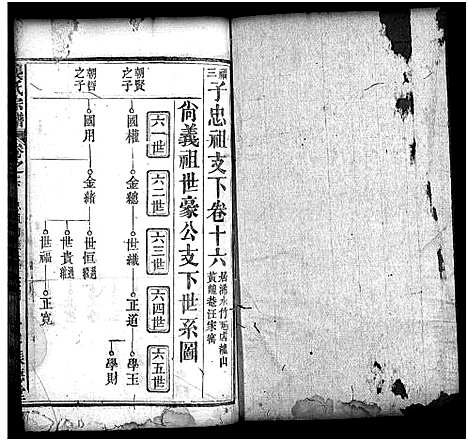 福三子忠祖支下卷十六
黃龍巷汪家灣
尙義祖世豪公支下世系圖
六一世
六二世
六三世
六四世
六五世
朝賢之子
國權
金總
世織
正道
學玉
學財
朝哲之子
國用
金緒
世恒
世貴
世福
正寬
氏宗譜
卷之